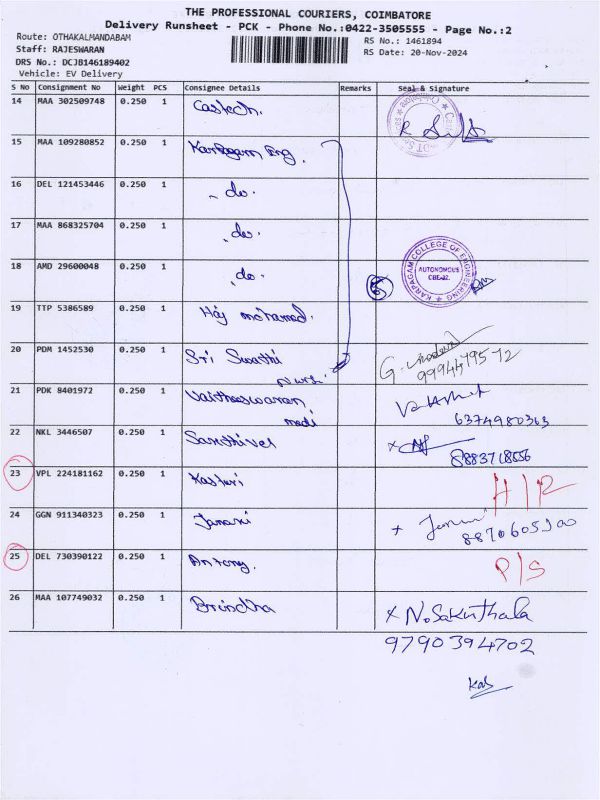 THE PROFESSIONAL COURIERS, COIMBATORE
Delivery Runsheet - PCK - Phone No.:0422-3505555 - Page No.:2
Route: OTHAKALMANDABAM
RS No.: 1461894
Staff: RAJESWARAN
RS Date: 20-Nov-2024
DRS No.: DCJB146189402
Vehicle: EV Delivery
S No Consignment No Weight PCS Consignee Details Remarks Seal & Signature
14 MAA 302509748 0.250 1 Castech.
15 MAA 109280852 0.250 1 Karpagam Eng.
16 DEL 121453446 0.250 1 - do.
17 MAA 868325704 0.250 1 - do.
18 AMD 29600048 0.250 1 - do.
KARPAGAM COLLEGE OF ENGINEERING
AUTONOMOUS
CBE-32.
5
19 TTP 5386589 0.250 1 Haj mohamed.
20 PDM 1452530 0.250 1 Sri Swathi
Nurs.
21 PDK 8401972 0.250 1 Vaitheeswaran
medi
6374980363
22 NKL 3446507 0.250 1 Sakthivel
8883718556
23 VPL 224181162 0.250 1 Kasturi
24 GGN 911340323 0.250 1 Janani
8870605300
25 DEL 730390122 0.250 1 Antony.
P/S
26 MAA 107749032 0.250 1 Brindha x N. Sakuthala
9790394702